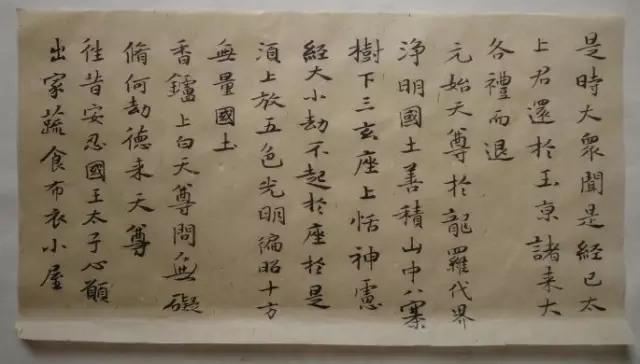 是時大眾聞是經已太
上君還於玉京諸来大
各禮而退
元始天尊於龍羅代界
淨明國土善積山中八騫
樹下三玄座上恬神慮
經大小劫不起於座於是
頂上放五色光明徧昭十方
無量國土
香鑪上白天尊問無礙
脩何劫德来天尊
徃昔安忍國王太子心願
出家蔬食布衣小屋